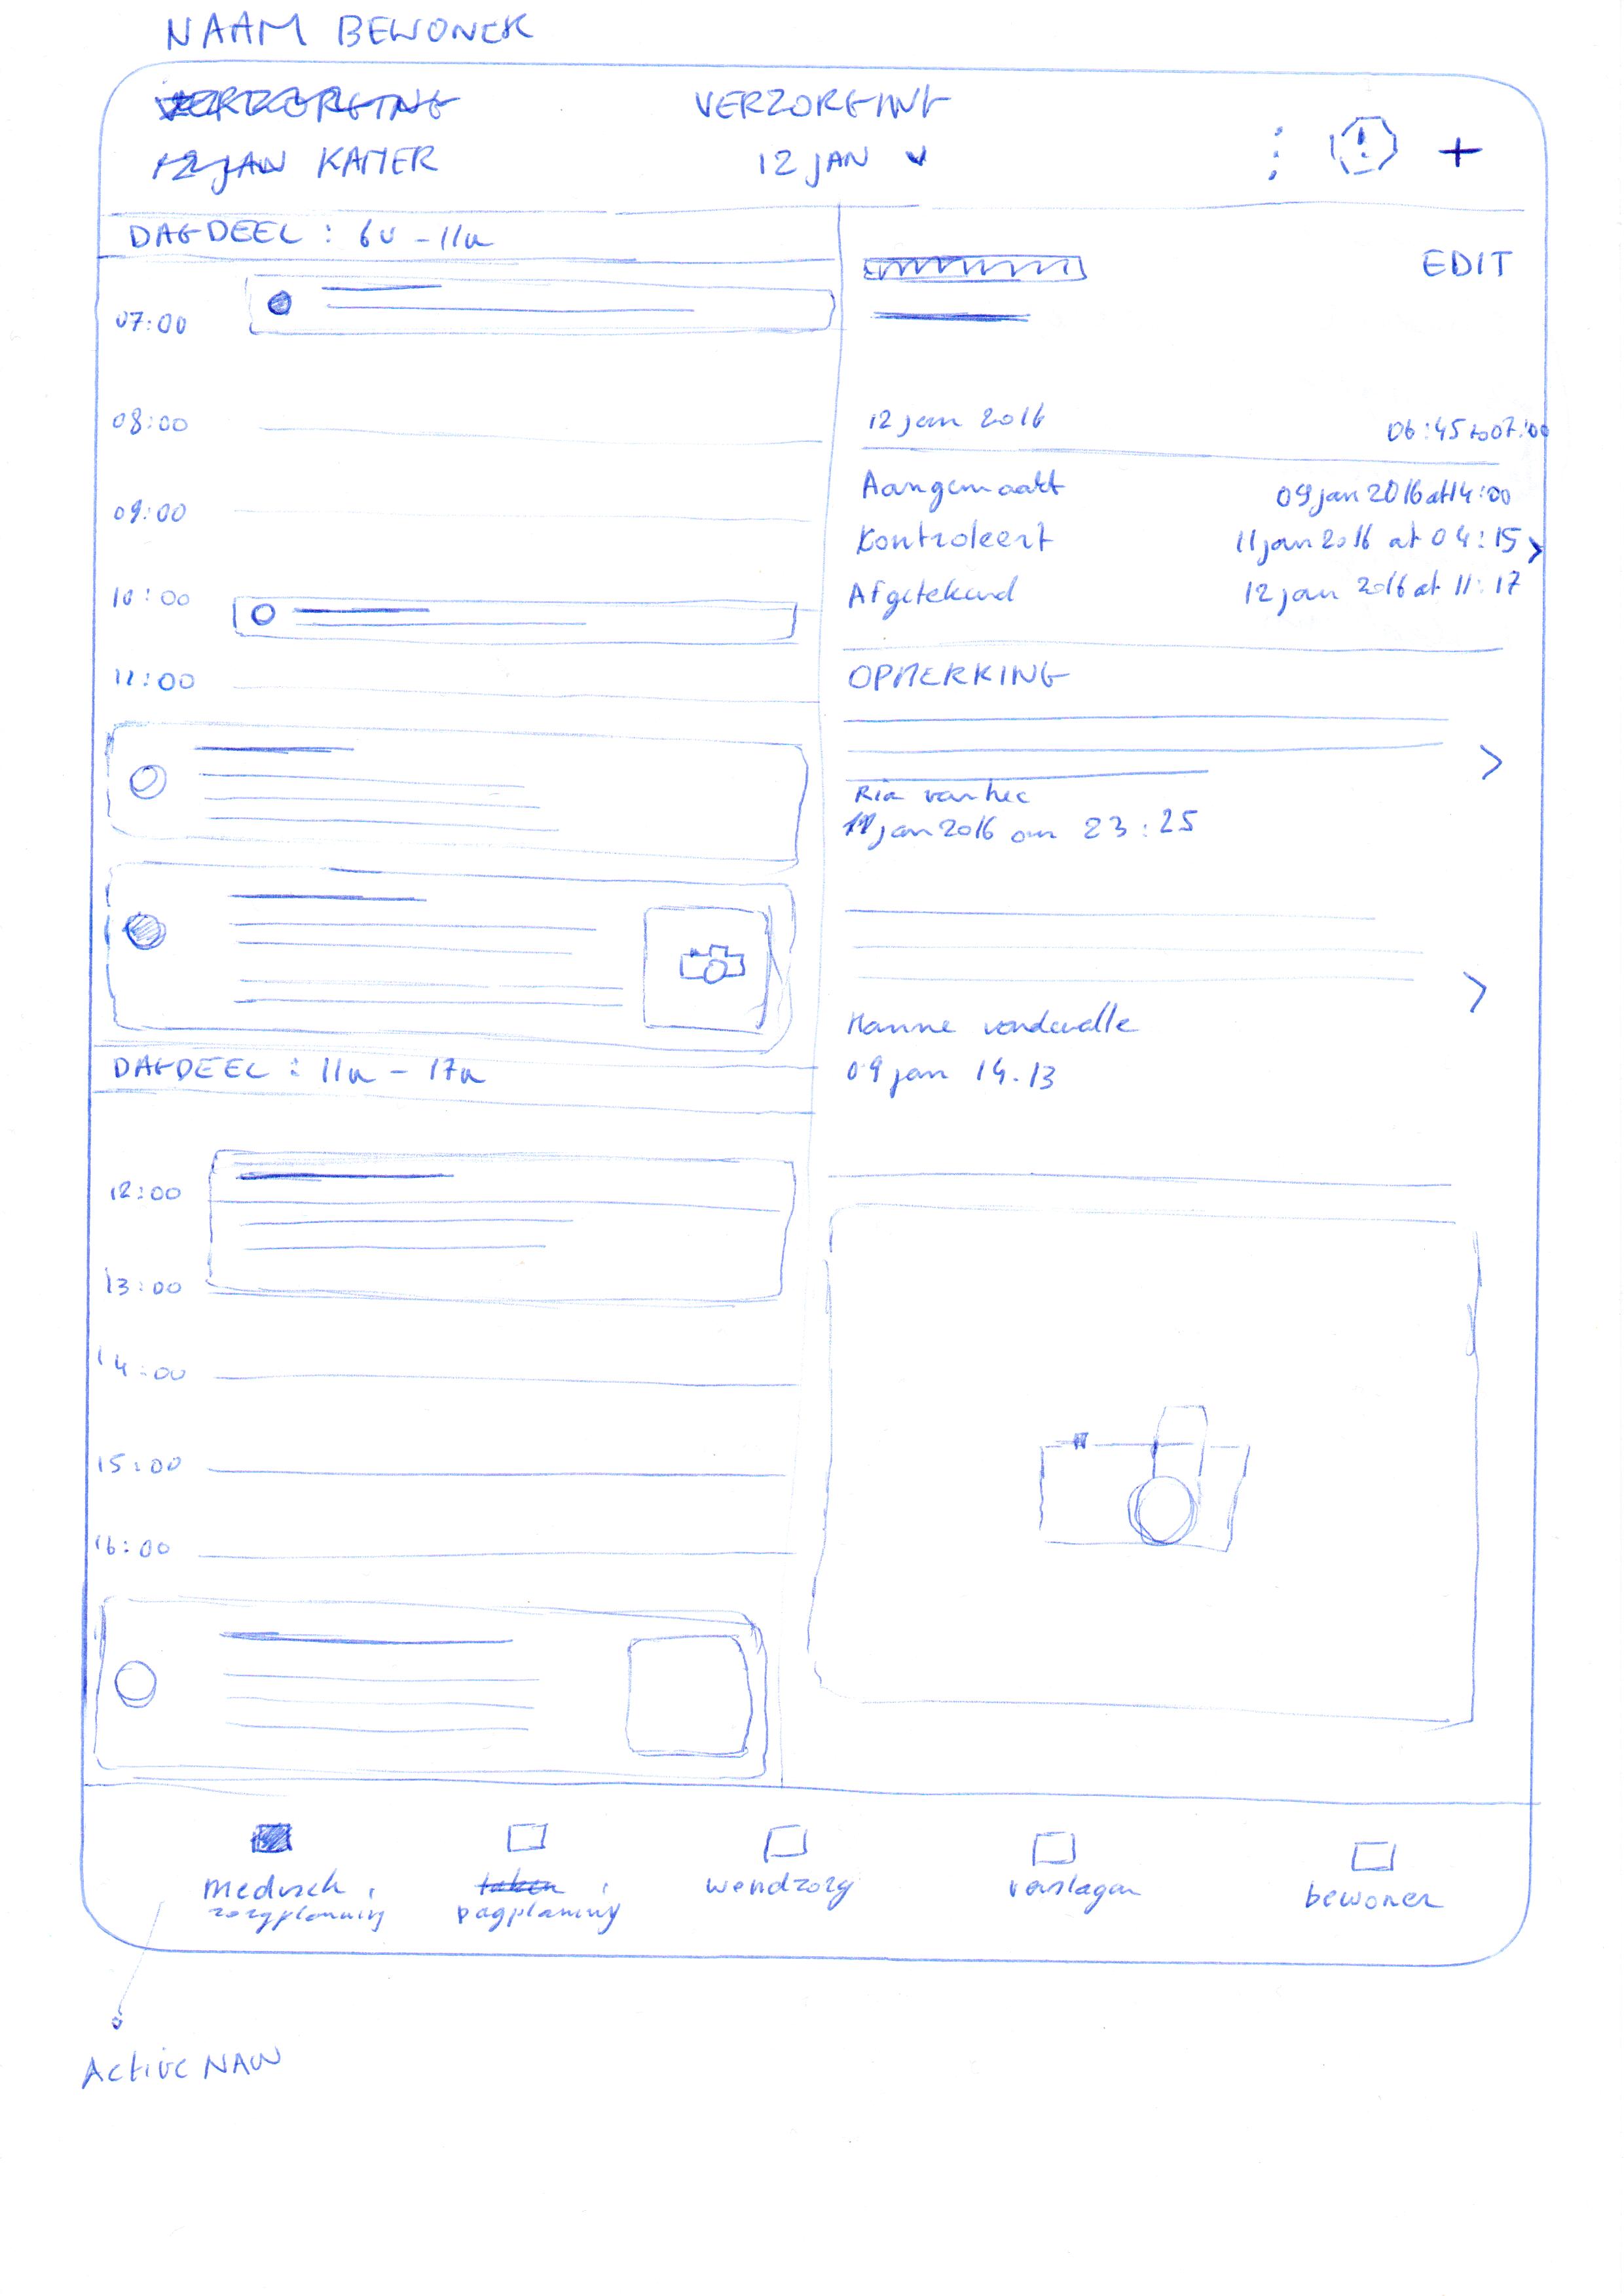 NAAM BEWONER
VERZORGING
12 JAN KAMER
VERZORGING
12 JAN
! +
DAGDEEL : 6u - 11u
07:00
08:00
09:00
10:00
11:00
DAGDEEL : 11u - 17u
12:00
13:00
14:00
15:00
16:00
EDIT
12 jan 2016 06:45 to 07:00
Aangemaakt 09 jan 2016 at 14:00
Kontroleert 11 jan 2016 at 04:15 >
Afgetekend 12 jan 2016 at 11:17
OPMERKING
>
Ria
11 jan 2016 om 23:25
>
Hanne vandewalle
09 jan 14.13
medisch
zorgplanning
taken
dagplaning
wondzorg
verslagen
bewoner
Active NAV